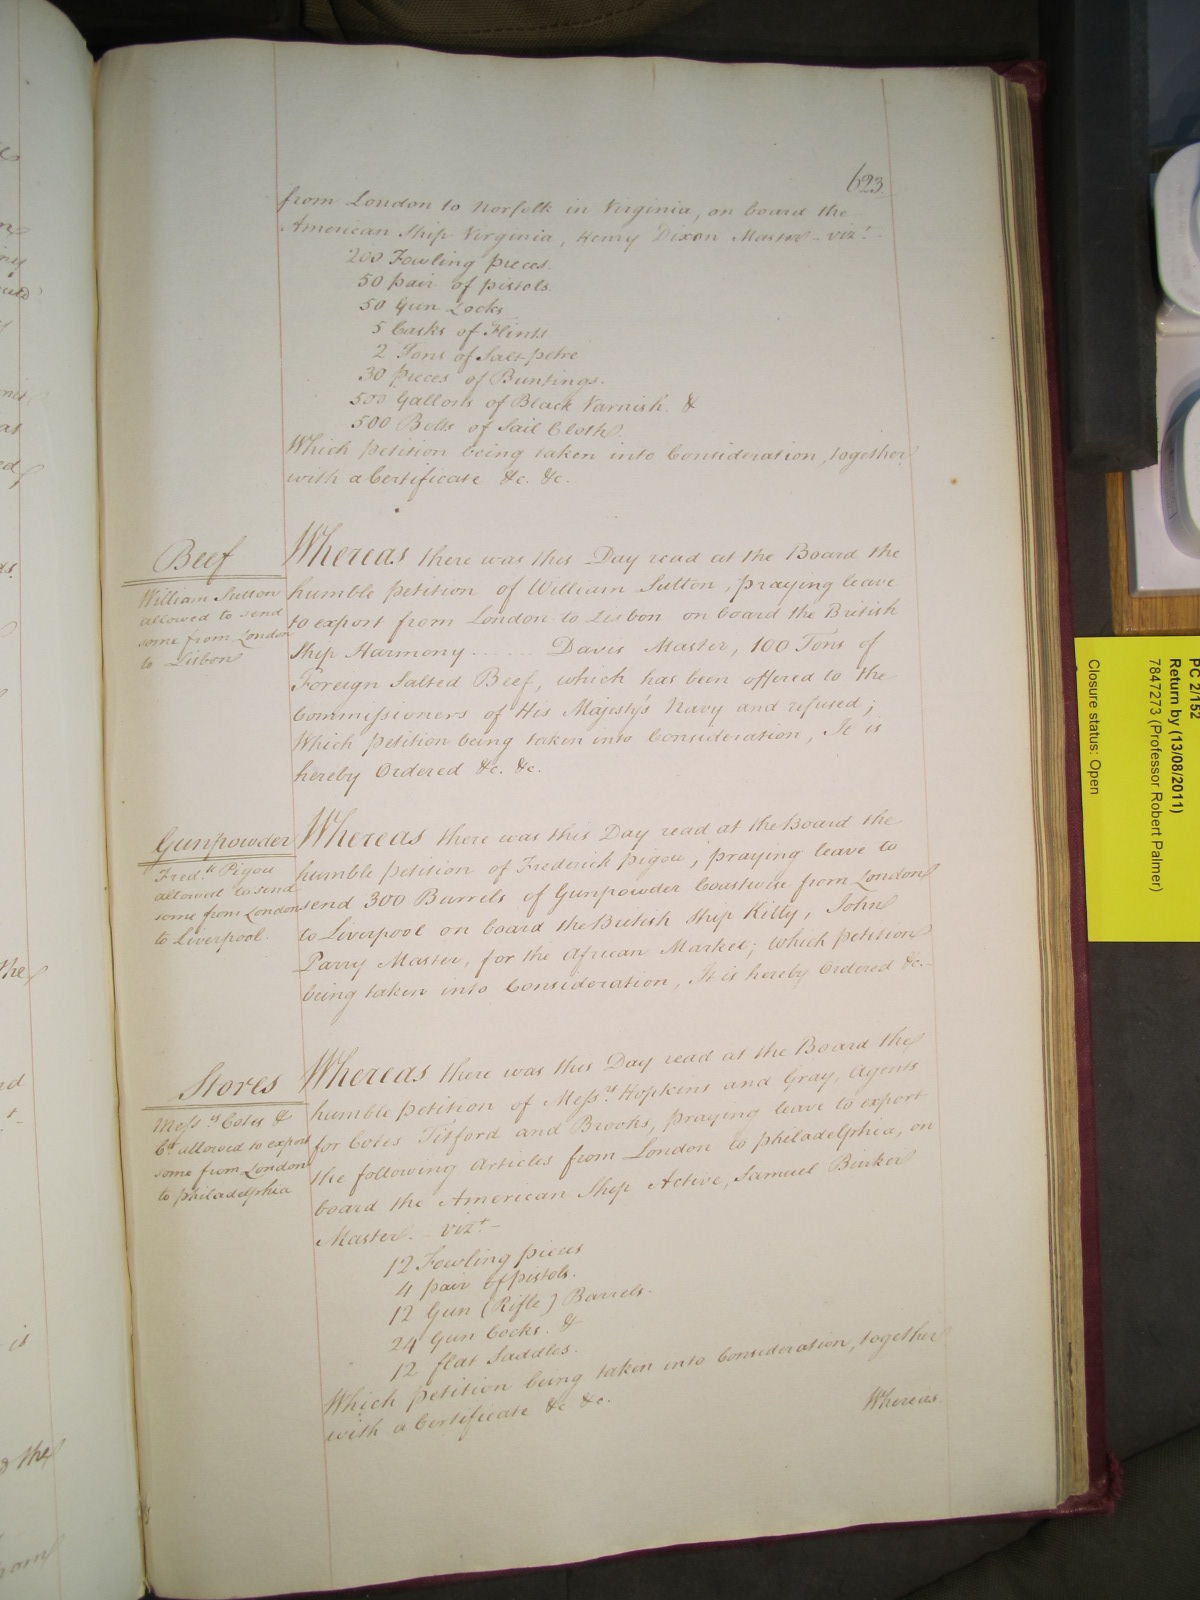 623
from London to Norfolk in Virginia, on board the
American Ship Virginia, Henry Dixon Master - vizt. -
200 Fowling pieces.
50 pair of pistols
50 Gun Locks
5 Casks of Flints
2 Tons of Salt-petre
30 pieces of Buntings.
500 Gallons of Black Varnish. &
500 Bolts of Sail Cloth
Which petition being taken into Consideration, together
with a Certificate &c. &c.
Beef
William Sutton
allowed to send
some from London
to Lisbon
Whereas there was this Day read at the Board the
humble petition of William Sutton, praying leave
to export from London to Lisbon on board the British
Ship Harmony ...... Davis Master, 100 Tons of
Foreign Salted Beef, which has been offered to the
Commissioners of His Majesty's Navy and refused;
Which petition being taken into Consideration, It is
hereby Ordered &c. &c.
Gunpowder
Fredk. Pigou
allowed to send
some from London
to Liverpool.
Whereas there was this Day read at the Board the
humble petition of Frederick Pigou, praying leave to
send 300 Barrels of Gunpowder Coastwise from London
to Liverpool on board the British Ship Kitty, John
Parry Master, for the African Market; which petition
being taken into Consideration, It is hereby Ordered &c.
Stores
Messrs. Cotes &
Co. allowed to export
some from London
to philadelphia
Whereas there was this Day read at the Board the
humble petition of Messrs. Hopkins and Gray, Agents
for Cotes Titford and Brooks, praying leave to export
the following Articles from London to philadelphia, on
board the American Ship Active, Samuel Binker
Master. - vizt -
12 Fowling pieces
4 pair of pistols.
12 Gun (Rifle) Barrels.
24 Gun Cocks. &
12 flat Saddles.
Which petition being taken into Consideration, together
with a Certificate &c &c.
Whereas
PC 2/152
Return by (13/08/2011)
7847273 (Professor Robert Palmer)
Closure status: Open